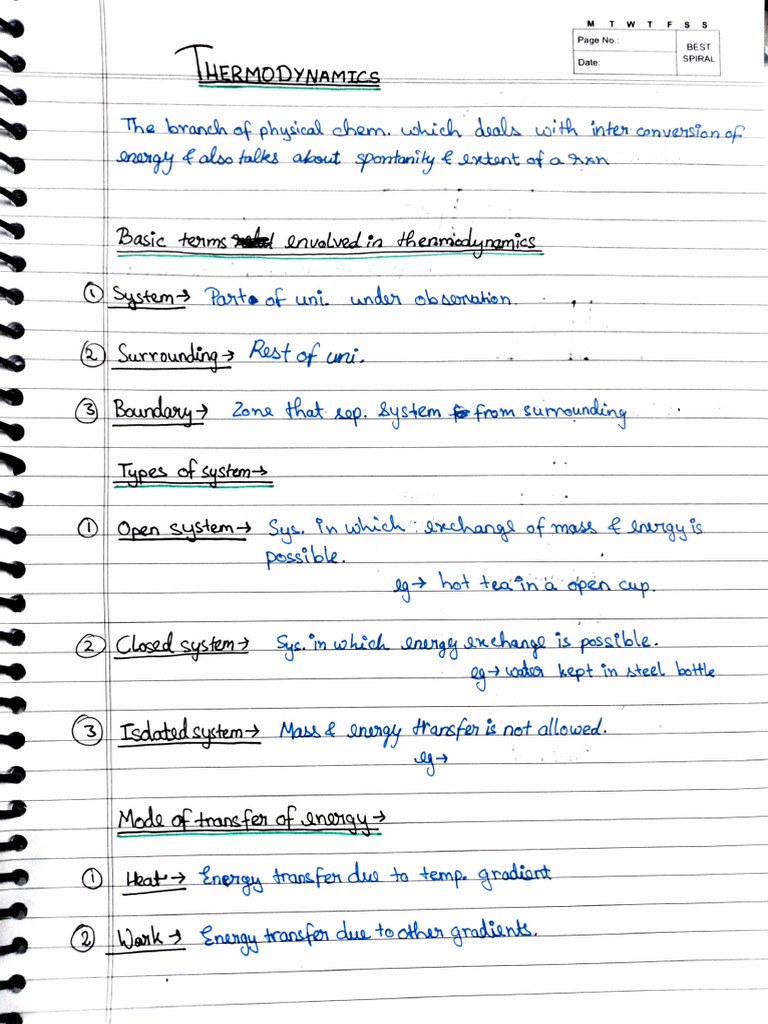 M T W T F S S
Page No.:
Date:
BEST
SPIRAL
THERMODYNAMICS
The branch of physical chem. which deals with inter conversion of
energy & also talks about spontanity & extent of a rxn
Basic terms envolved in thermodynamics
① System → Part of uni. under observation.
② Surrounding → Rest of uni.
③ Boundary → Zone that sep. system from surrounding
Types of system →
① Open system → Sys. in which exchange of mass & energy is
possible.
eg → hot tea in a open cup.
② Closed system → Sys. in which energy exchange is possible.
eg → water kept in steel bottle
③ Isolated system → Mass & energy transfer is not allowed.
eg →
Mode of transfer of energy →
① Heat → Energy transfer due to temp. gradient
② Work → Energy transfer due to other gradients.